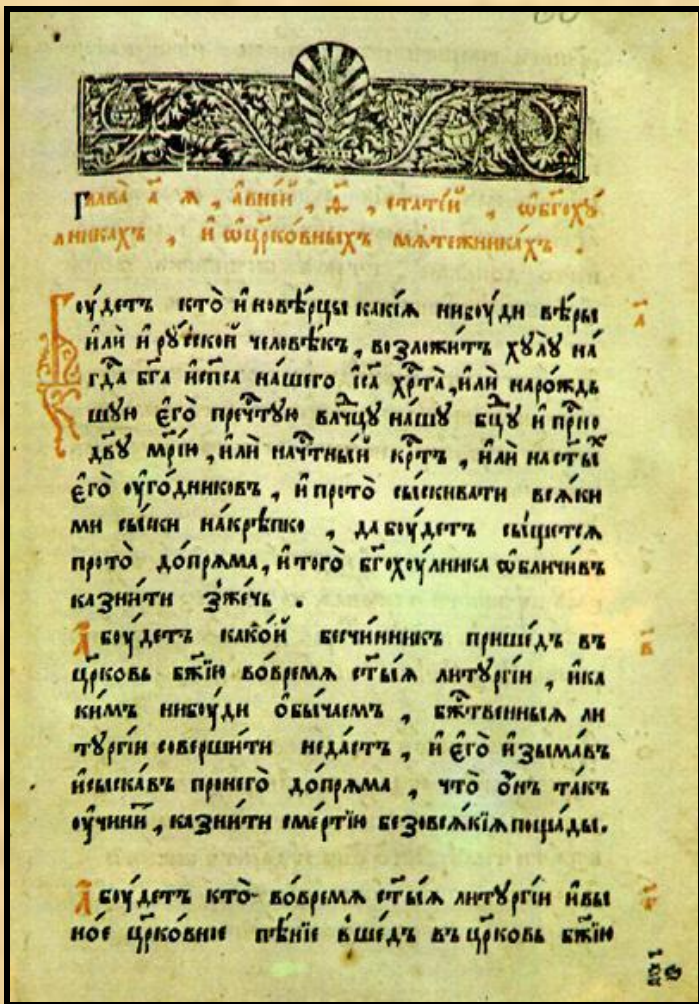 Глава̀ а҃ я , а҆вне́й , д҃ , стате́й , ѡ҆бг҃охꙋ́
лникахъ , и҆ ѡ҆цр҃ко́вныхъ мѧте́жникахъ .
Бꙋ́детъ кто̀ и҆нове́рцы какі́ѧ нибꙋ́ди вѣ́ры
и҆лѝ и҆рꙋ́ской человѣ́къ , возложи́тъ хꙋлꙋ̀ на́
гдⷭ҇а бг҃а и҆сп҃са на́шего і҆са хрⷭ҇та̀ , и҆лѝ наро́ждь
шꙋю є҆го̀ пречⷭ҇тꙋю влⷣчцꙋ на́шꙋ бцⷣꙋ и҆ прⷭ҇но
дв҃ꙋ мр҃і́ю , и҆лѝ начⷭ҇тны́й крⷭ҇тъ , и҆лѝ наст҃ы́ⷯ
є҆го̀ ᲂу҆го́дниковъ , и҆ прото̀ сы́скивати всѧ́ки
ми сы́ски на́крѣпко , да бꙋ́детъ сы́щетсѧ
прото̀ до́прѧма , и҆ того̀ бг҃охꙋ́лника ѡ҆бличи́въ
казни́ти зже́чь .
А҆ бꙋ́детъ како́й бесчи́нникъ прише́дъ въ
цр҃ковь бж҃їю во́времѧ ст҃ы́ѧ литꙋргі́и , и҆ка
ки́мъ нибꙋ́ди о҆бы́чаемъ , бжⷭ҇твенныѧ ли
тꙋргі́и соверши́ти неда́стъ , и҆ є҆го̀ и҆зыма́въ
и҆сыска́въ пронего̀ до́прѧма , что̀ ѻ҆́нъ та́къ
ᲂу҆чини́ , казни́ти сме́ртїю безовсѧ́кїѧ поща́ды.
А҆ бꙋ́детъ кто̀ во́времѧ ст҃ы́ѧ литꙋргі́и и҆вы
но́е цр҃ко́вное пѣ́нїе вше́дъ въ цр҃ковь бж҃їю
а҃
в҃
г҃